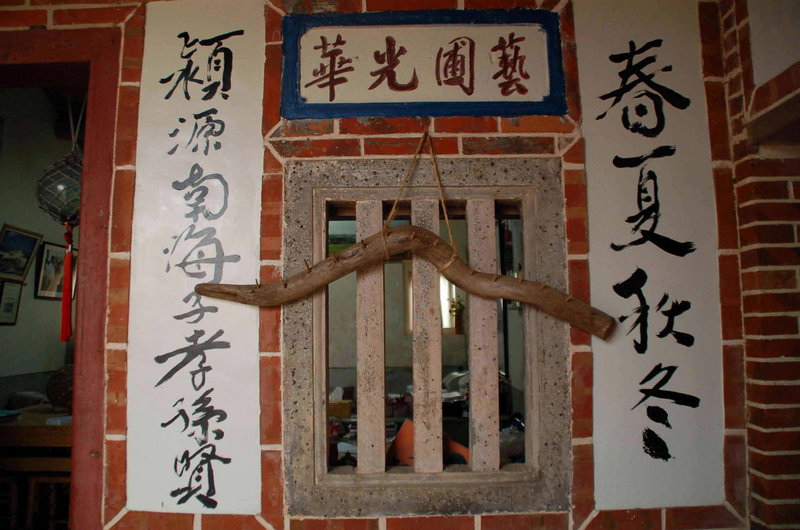 藝圃光華
春夏秋冬
潁源南海子孝孫賢